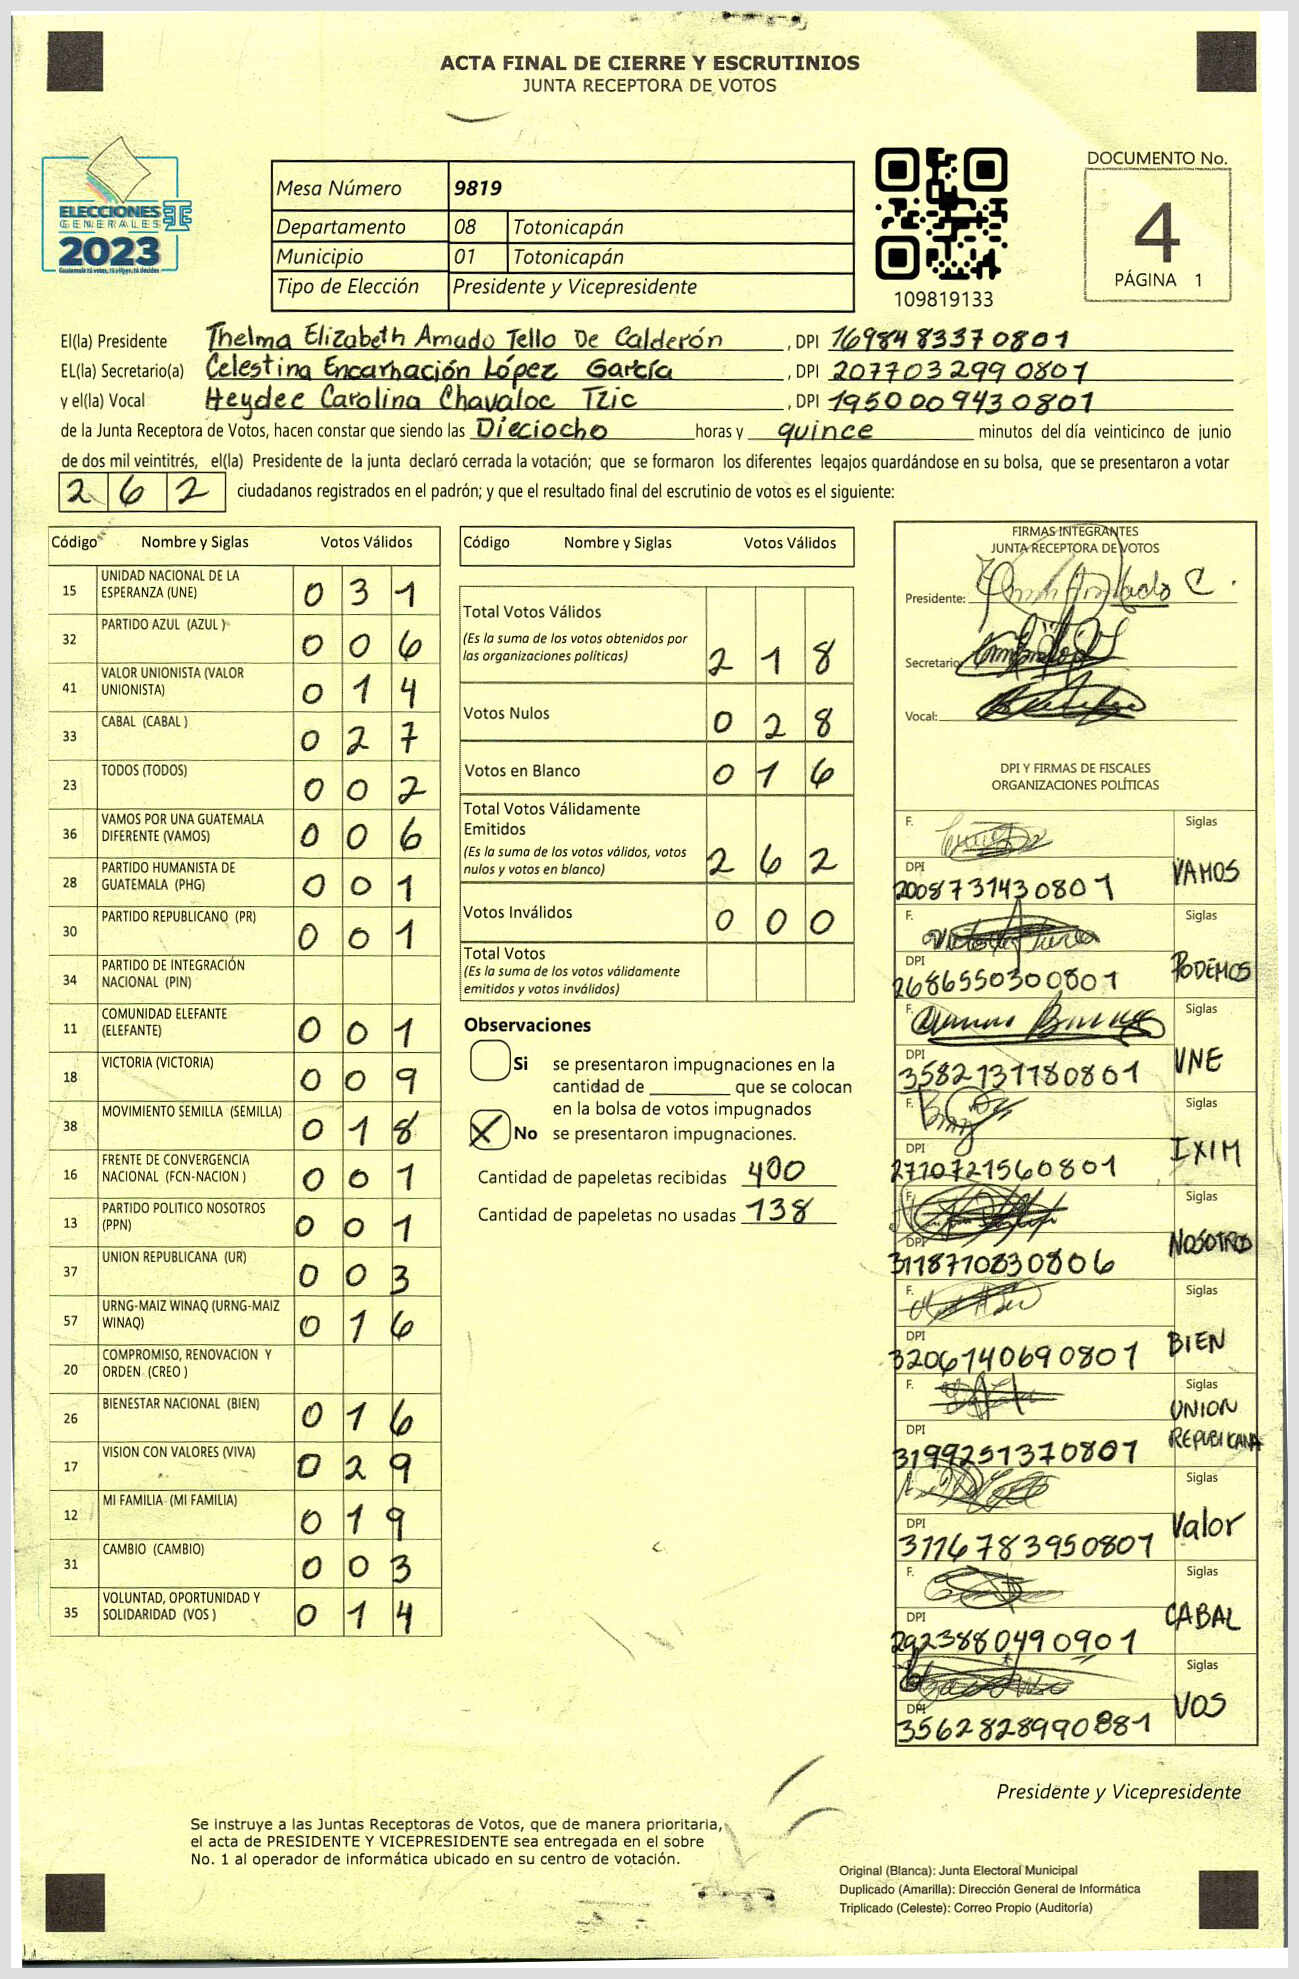 ACTA FINAL DE CIERRE Y ESCRUTINIOS
JUNTA RECEPTORA DE VOTOS
ELECCIONES
GENERALES
2023
Guatemala tú votas, tú eliges, tú decides
Mesa Número 9819
Departamento 08 Totonicapán
Municipio 01 Totonicapán
Tipo de Elección Presidente y Vicepresidente
109819133
DOCUMENTO No.
4
PÁGINA 1
El(la) Presidente Thelma Elizabeth Amado Tello De Calderón, DPI 1698483370801
EL(la) Secretario(a) Celestina Encarnación López García, DPI 2077032990801
y el(la) Vocal Heydee Carolina Chavaloc Tzic, DPI 1950009430801
de la Junta Receptora de Votos, hacen constar que siendo las Dieciocho horas y quince minutos del día veinticinco de junio
de dos mil veintitrés, el(la) Presidente de la junta declaró cerrada la votación; que se formaron los diferentes legajos guardándose en su bolsa, que se presentaron a votar
262 ciudadanos registrados en el padrón; y que el resultado final del escrutinio de votos es el siguiente:
Código Nombre y Siglas Votos Válidos
15 UNIDAD NACIONAL DE LA ESPERANZA (UNE) 0 3 1
32 PARTIDO AZUL (AZUL ) 0 0 6
41 VALOR UNIONISTA (VALOR UNIONISTA) 0 1 4
33 CABAL (CABAL ) 0 2 7
23 TODOS (TODOS) 0 0 2
36 VAMOS POR UNA GUATEMALA DIFERENTE (VAMOS) 0 0 6
28 PARTIDO HUMANISTA DE GUATEMALA (PHG) 0 0 1
30 PARTIDO REPUBLICANO (PR) 0 0 1
34 PARTIDO DE INTEGRACIÓN NACIONAL (PIN)
11 COMUNIDAD ELEFANTE (ELEFANTE) 0 0 1
18 VICTORIA (VICTORIA) 0 0 9
38 MOVIMIENTO SEMILLA (SEMILLA) 0 1 8
16 FRENTE DE CONVERGENCIA NACIONAL (FCN-NACION ) 0 0 1
13 PARTIDO POLITICO NOSOTROS (PPN) 0 0 1
37 UNION REPUBLICANA (UR) 0 0 3
57 URNG-MAIZ WINAQ (URNG-MAIZ WINAQ) 0 1 6
20 COMPROMISO, RENOVACION Y ORDEN (CREO )
26 BIENESTAR NACIONAL (BIEN) 0 1 6
17 VISION CON VALORES (VIVA) 0 2 9
12 MI FAMILIA (MI FAMILIA) 0 1 9
31 CAMBIO (CAMBIO) 0 0 3
35 VOLUNTAD, OPORTUNIDAD Y SOLIDARIDAD (VOS ) 0 1 4
Código Nombre y Siglas Votos Válidos
Total Votos Válidos
(Es la suma de los votos obtenidos por
las organizaciones políticas) 2 1 8
Votos Nulos 0 2 8
Votos en Blanco 0 1 6
Total Votos Válidamente
Emitidos
(Es la suma de los votos válidos, votos
nulos y votos en blanco) 2 6 2
Votos Inválidos 0 0 0
Total Votos
(Es la suma de los votos válidamente
emitidos y votos inválidos)
Observaciones
Si se presentaron impugnaciones en la
cantidad de ________ que se colocan
en la bolsa de votos impugnados
X No se presentaron impugnaciones.
Cantidad de papeletas recibidas 400
Cantidad de papeletas no usadas 138
FIRMAS INTEGRANTES
JUNTA RECEPTORA DE VOTOS
Presidente:
Secretario:
Vocal:
DPI Y FIRMAS DE FISCALES
ORGANIZACIONES POLÍTICAS
F. Siglas
DPI 2008731430801 VAMOS
F. Siglas
DPI 2686550300801 PODEMOS
F. Siglas
DPI 3582131180801 UNE
F. Siglas
DPI 2710721560801 IXIM
F. Siglas
DPI 3118710830806 NOSOTROS
F. Siglas
DPI 3206140690801 BIEN
F. Siglas
DPI 3199251370801 UNION REPUBLICANA
Siglas
DPI 3116783950801 Valor
F. Siglas
DPI 2923880490901 CABAL
Siglas
DPI 3562828990881 VOS
Presidente y Vicepresidente
Se instruye a las Juntas Receptoras de Votos, que de manera prioritaria,
el acta de PRESIDENTE Y VICEPRESIDENTE sea entregada en el sobre
No. 1 al operador de informática ubicado en su centro de votación.
Original (Blanca): Junta Electoral Municipal
Duplicado (Amarilla): Dirección General de Informática
Triplicado (Celeste): Correo Propio (Auditoría)